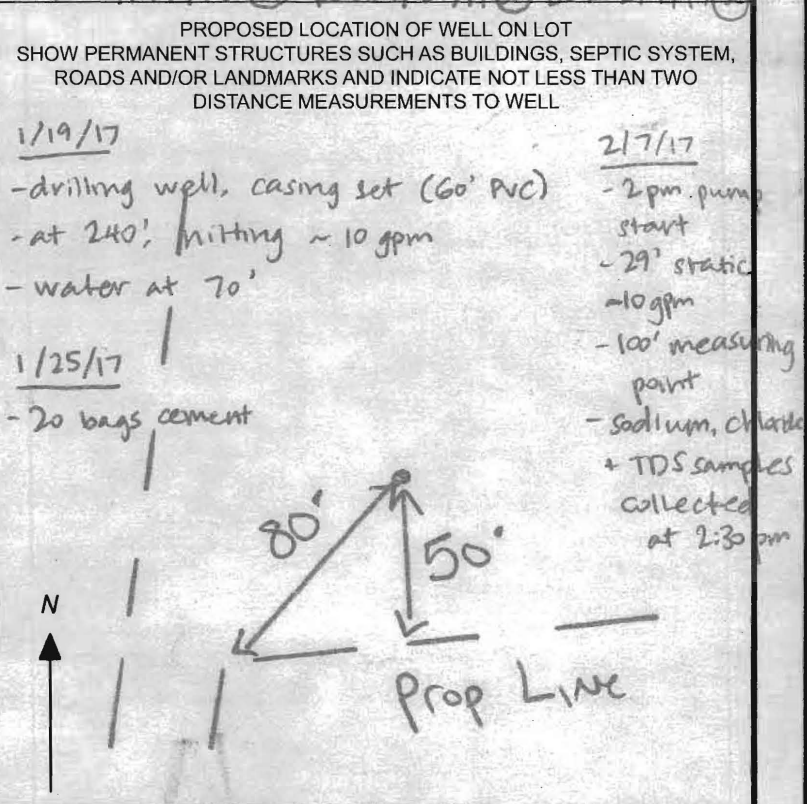 PROPOSED LOCATION OF WELL ON LOT
SHOW PERMANENT STRUCTURES SUCH AS BUILDINGS, SEPTIC SYSTEM,
ROADS AND/OR LANDMARKS AND INDICATE NOT LESS THAN TWO
DISTANCE MEASUREMENTS TO WELL
1/19/17
-drilling well, casing set (60' PVC)
-at 240', hitting ~ 10 gpm
- water at 70'
1/25/17
- 20 bags cement
2/7/17
- 2pm pump
start
- 29' static
~10 gpm
- 100' measuring
point
- sodium, chloride
+ TDS samples
collected
at 2:30 pm
80'
50'
N
Prop Line